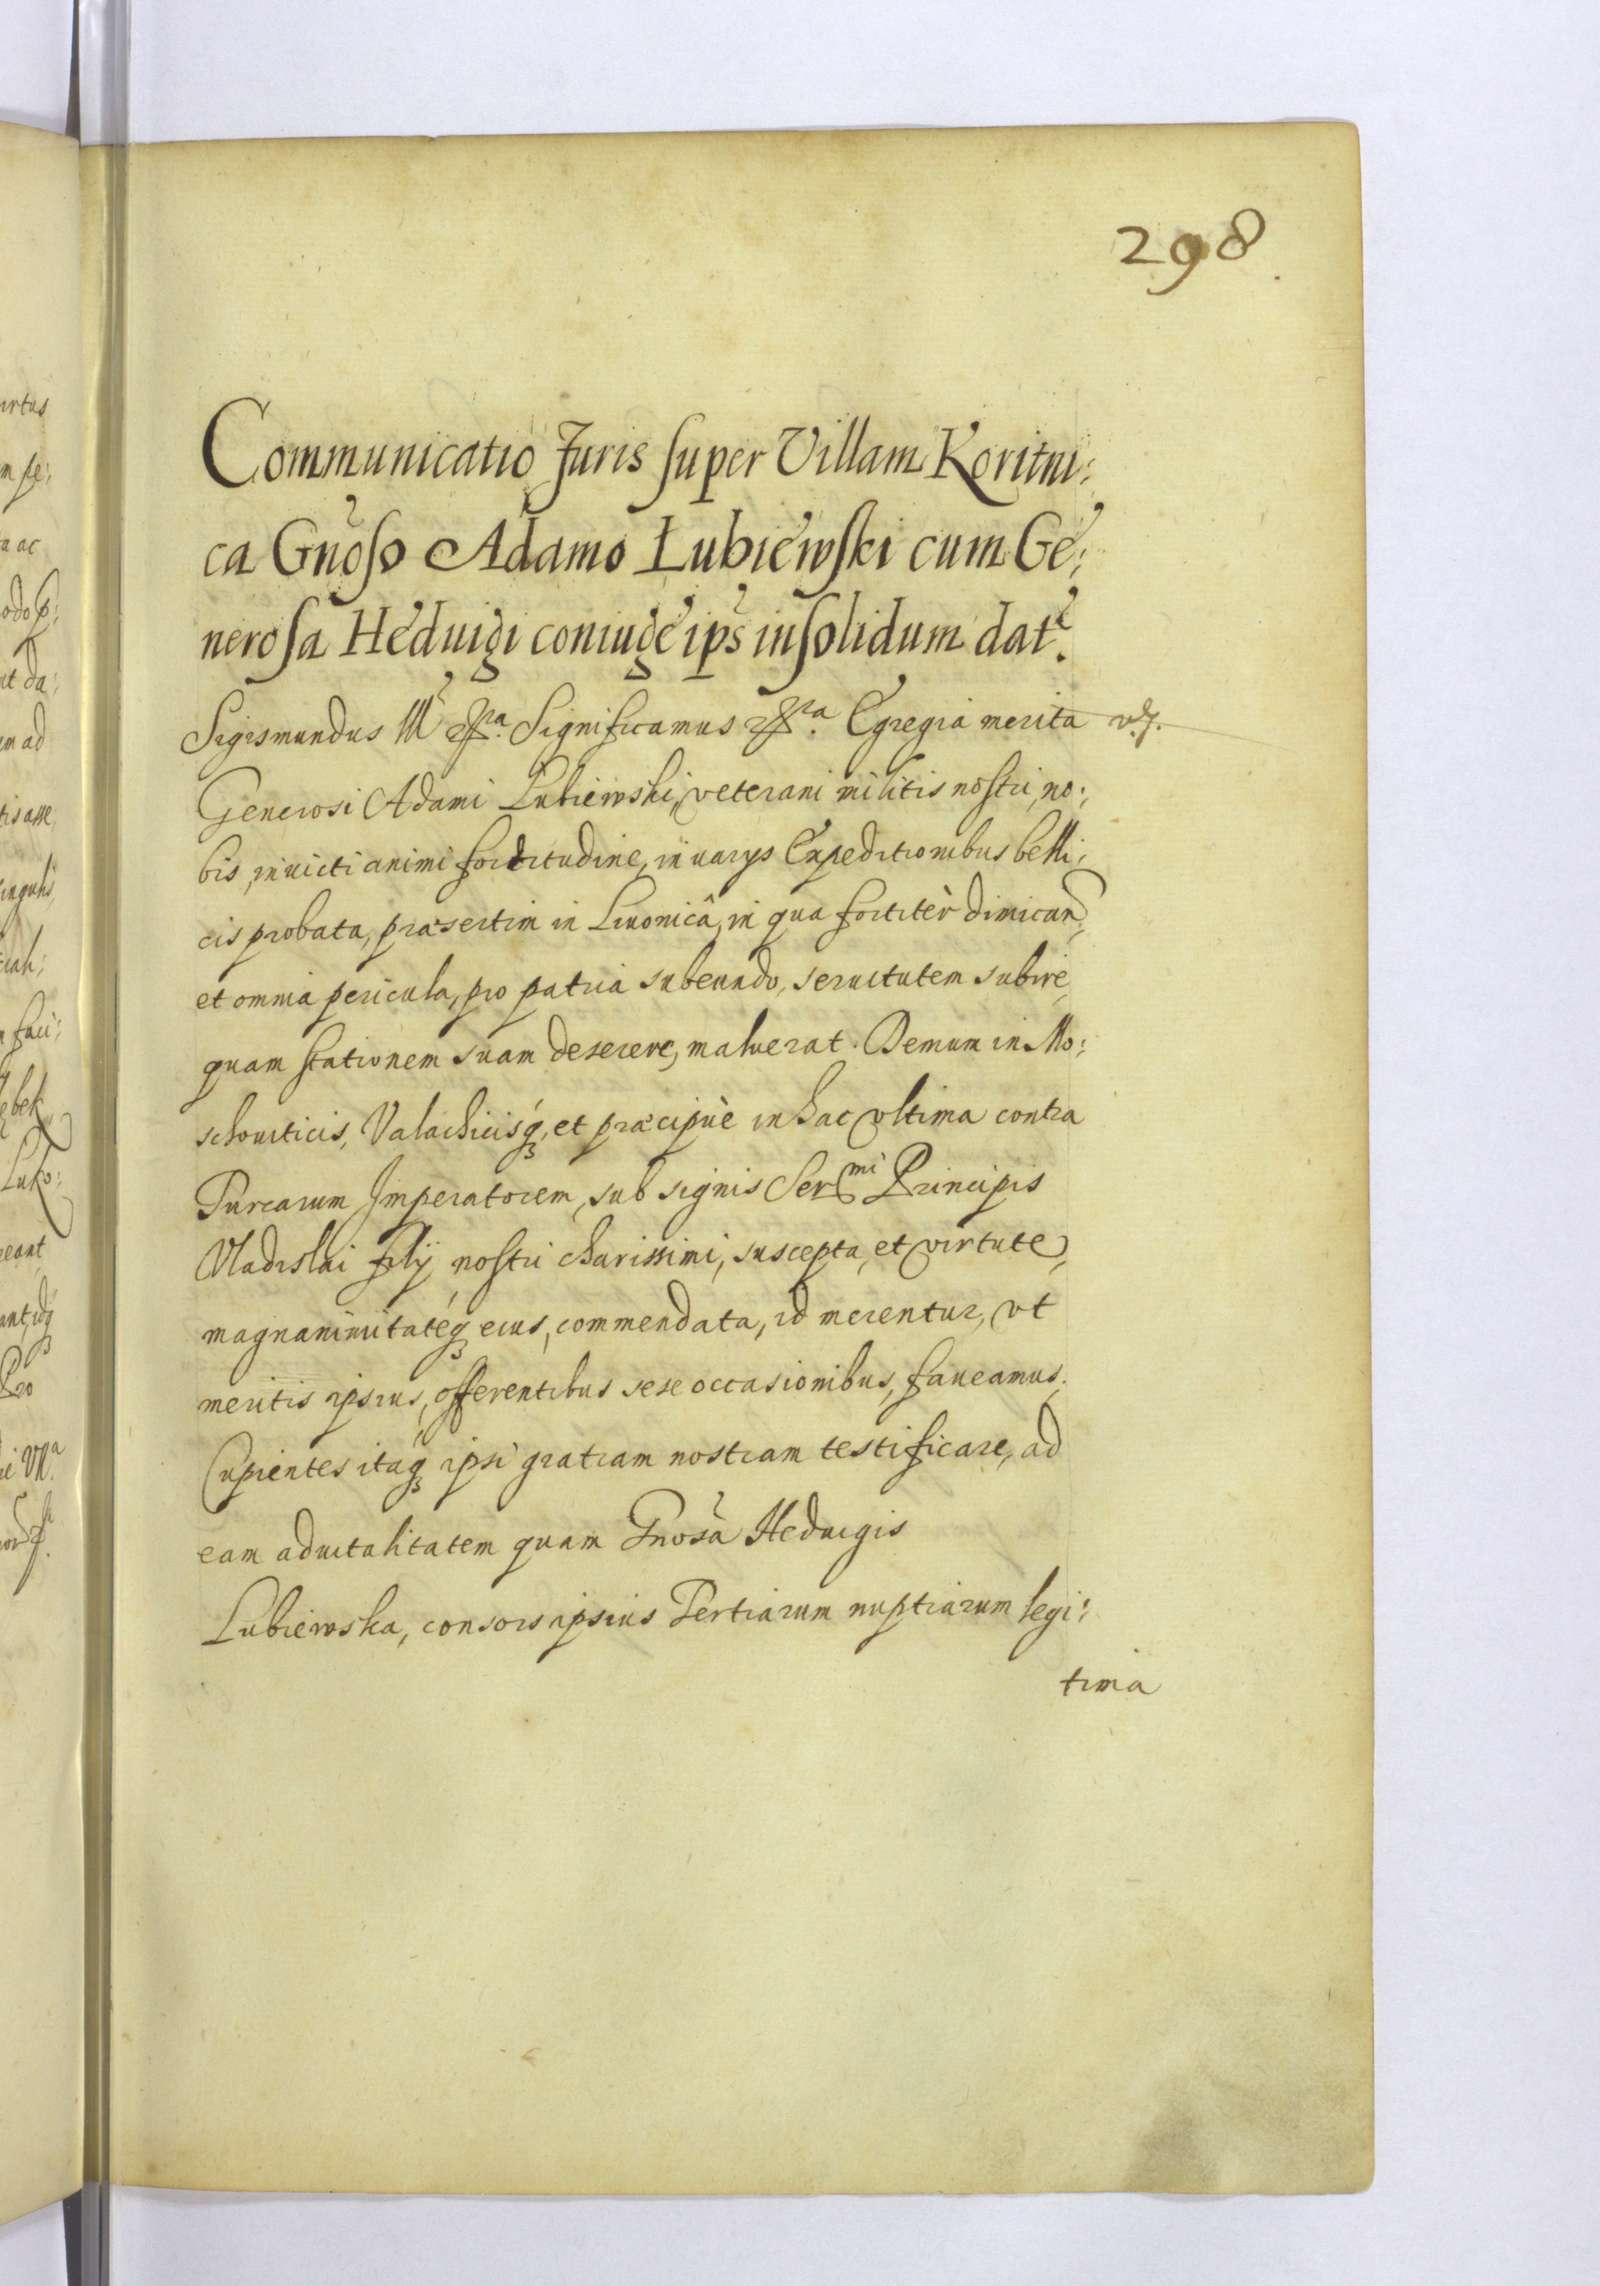 298
Communicatio Juris super Villam Koritni:
ca Gnoso Adamo Lubiewski cum Ge:
nerosa Heduigi coniuge ips insolidum dat.
Sigismundus III Significamus Egregia merita
Generosi Adami Lubiewski, veterani militis nostri, no:
bis, inuicti animi fortitudine, in varys Expeditionibus belli:
cis probata, præsertim in Liuonicâ, in qua fortitèr dimican,
et omnia pericula, pro patria subeundo, seruitutem subire,
quam stationem suam deserere, maluerat. Demum in Mo:
schouiticis, Valachicisq3, et præcipuè in hac vltima contra
Turcarum Imperatorem, sub signis Ser mi Principis
Vladislai filij nostri charissimi, suscepta, et virtute,
magnanimitateq3 eius, commendata, id merentur, vt
meritis ipsius, offerentibus sese occasionibus, faueamus.
Cupientes itaq3 ipsi gratiam nostram testificare, ad
eam aduitalitatem quam Gnosa Heduigis
Lubiewska, consors ipsius Tertiarum nuptiarum legi:
tima